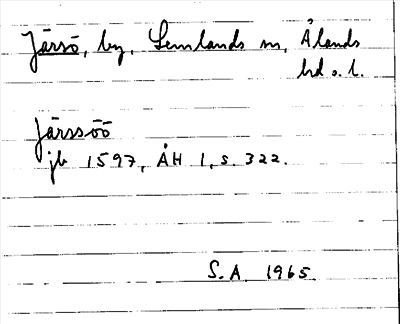 Järsö, by, Lemlands sn, Ålands
hd o. l.
Järssöö
jb 1597, ÅH 1, s. 322.
S.A 1965.